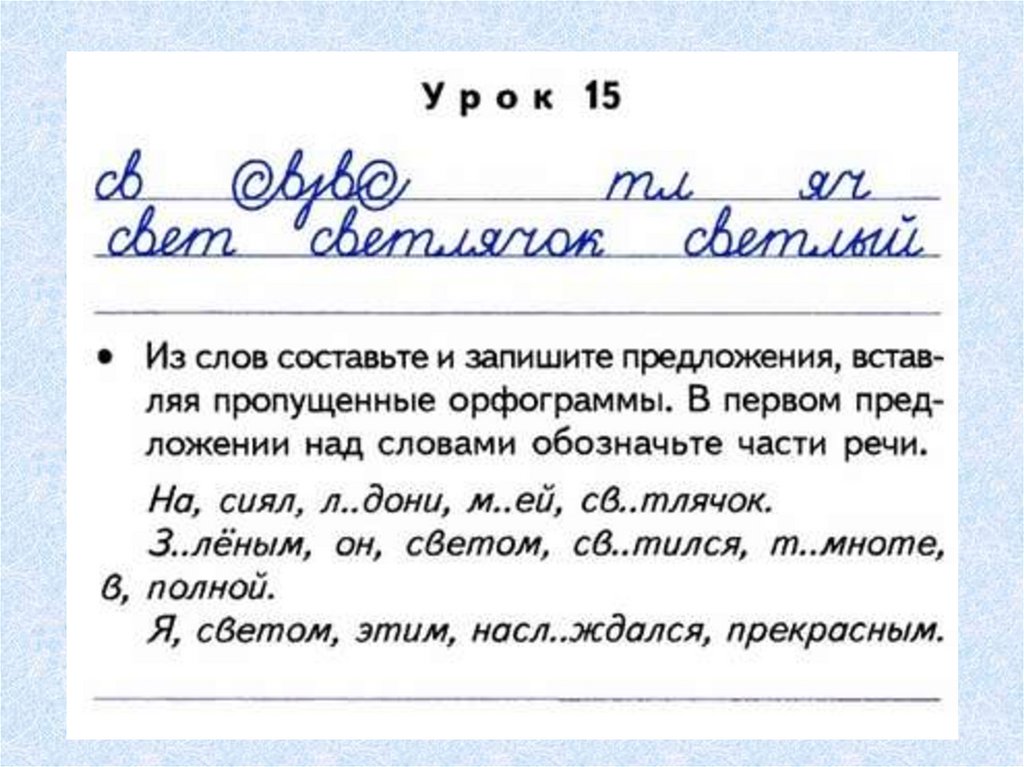 Урок 15
св @взв@ тл яч
свет светлячок светлый
• Из слов составьте и запишите предложения, встав-
ляя пропущенные орфограммы. В первом пред-
ложении над словами обозначьте части речи.
На, сиял, л..дони, м..ей, св..тлячок.
З..лёным, он, светом, св..тился, т..мноте,
в, полной.
Я, светом, этим, насл..ждался, прекрасным.